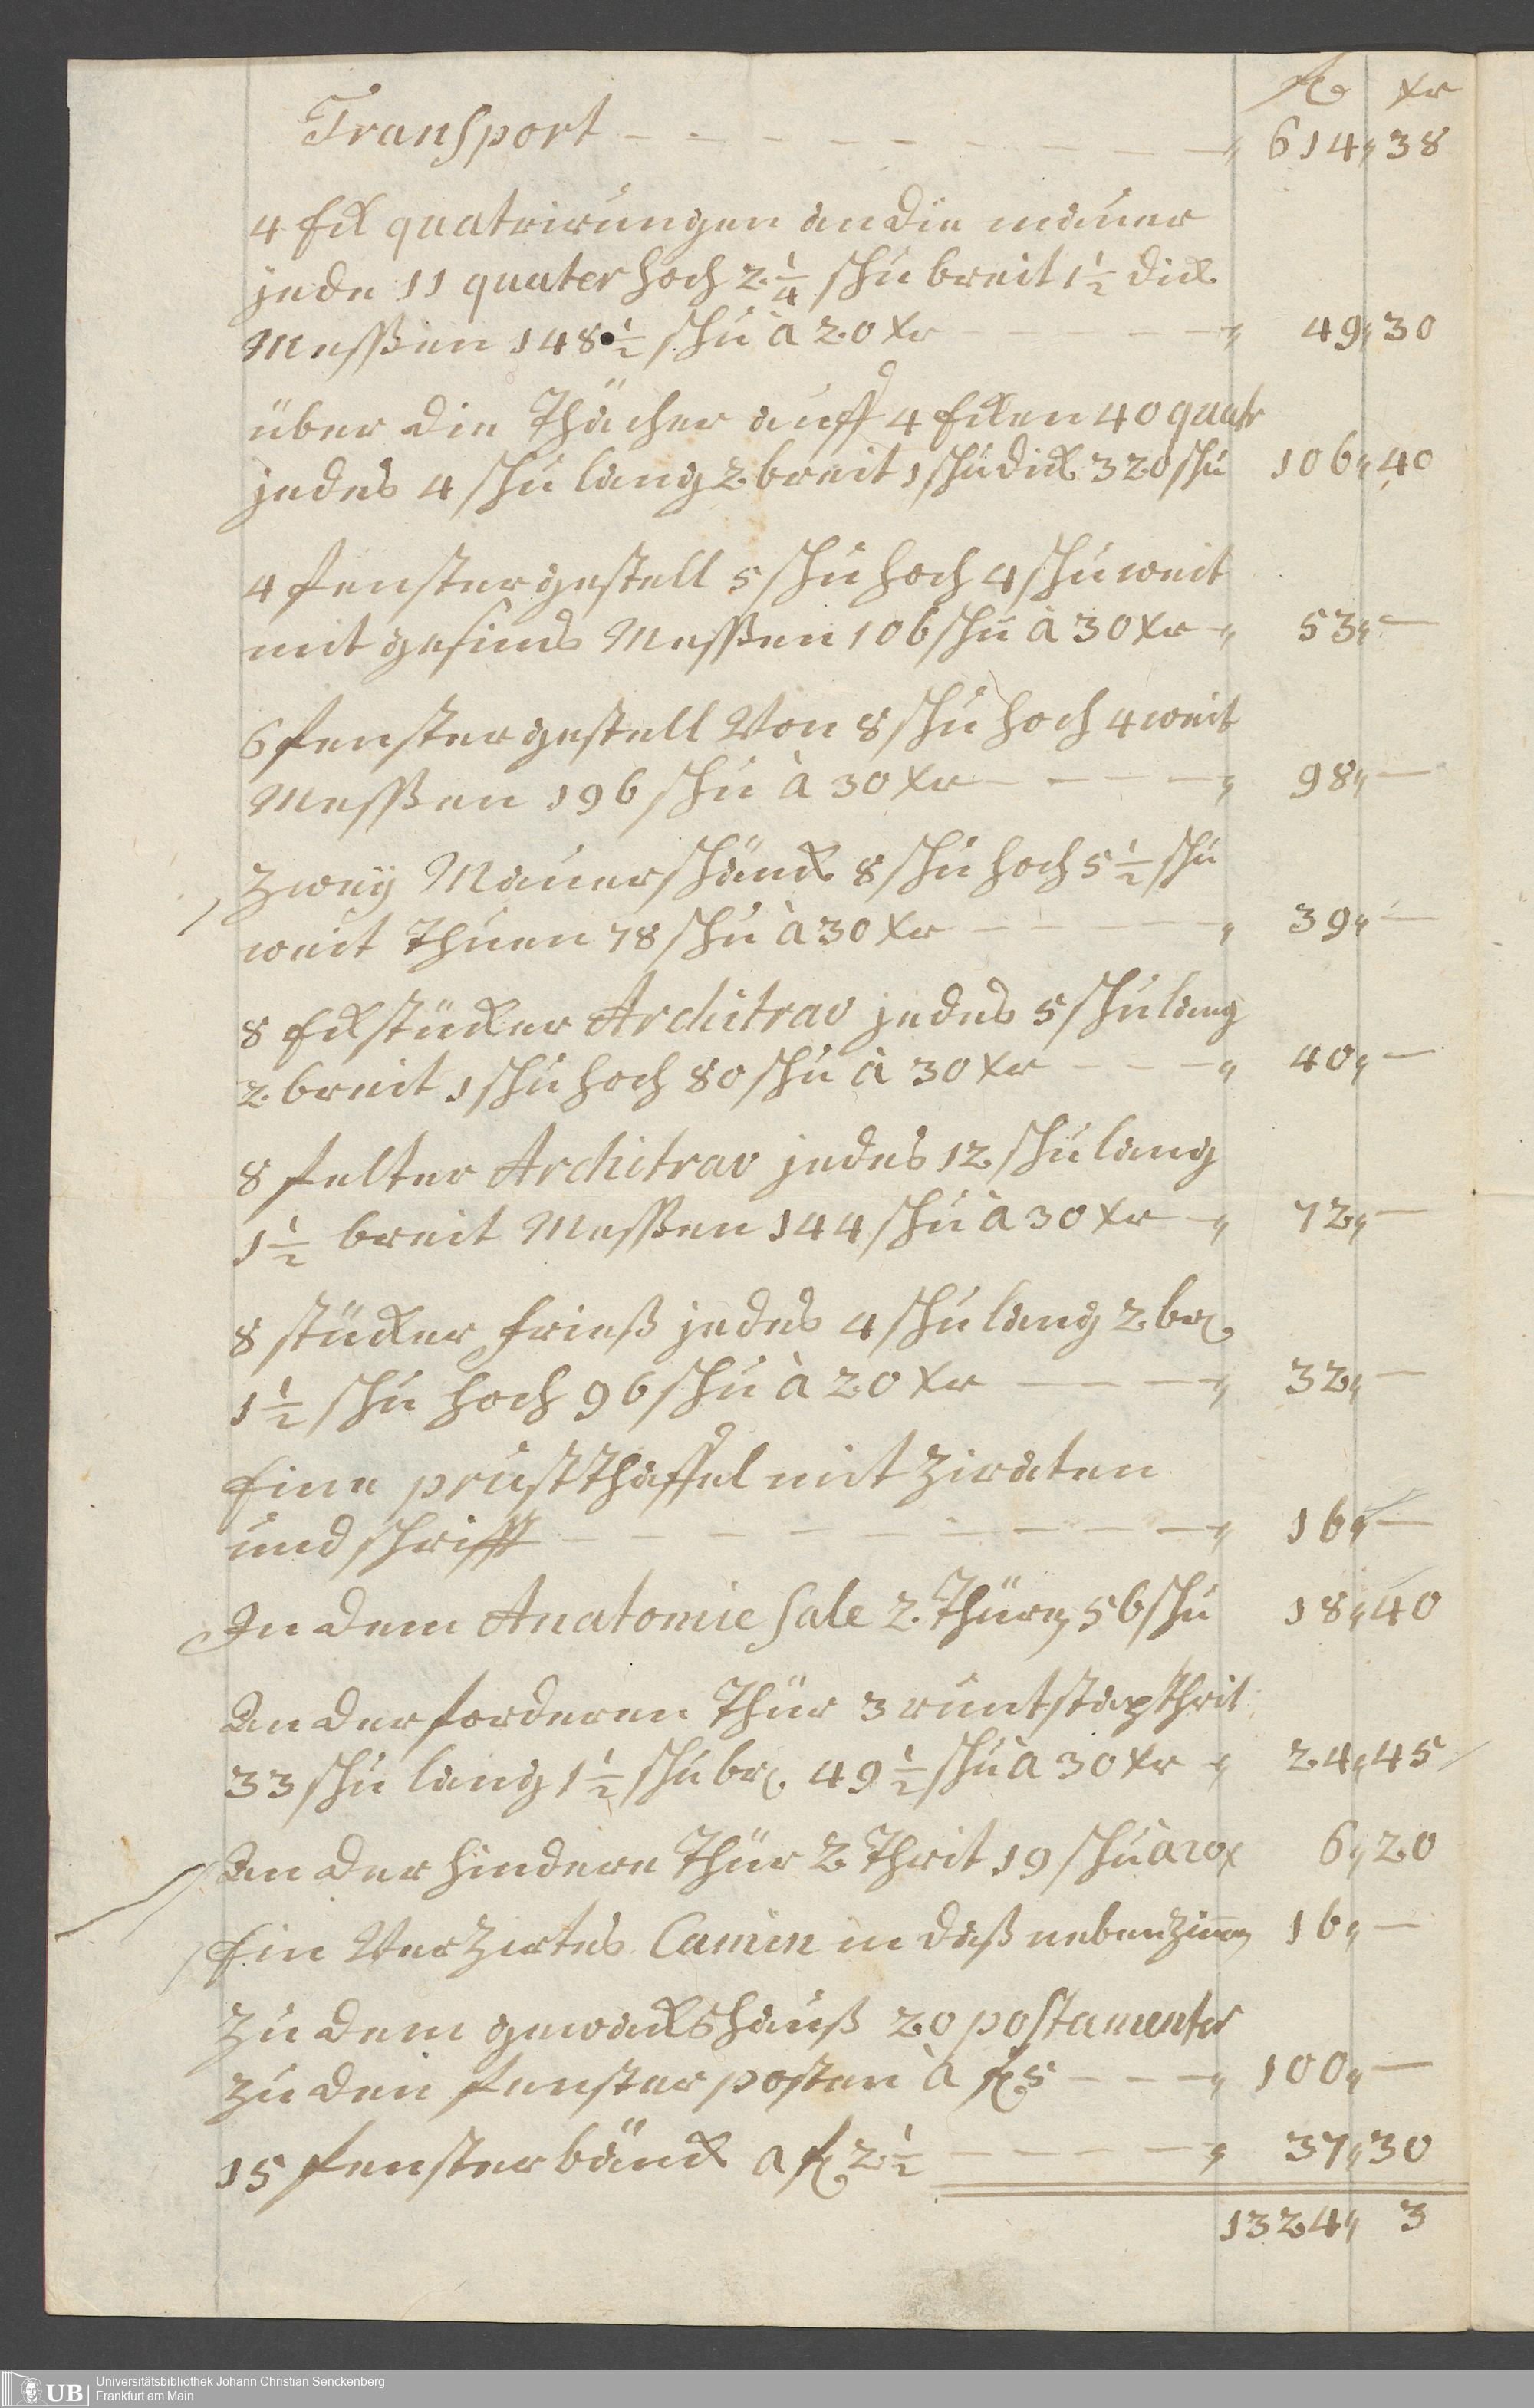 fl xr
Transport - - - - - - - - „ 614„ 38
4 Eck quatrirungen an die mauer
jede 11 quater hoch 2 1/4 schu breit 1 1/2 dick
Messen 148 1/2 schu à 20 xr - - - „ 49„ 30
über die Thächer auff 4 Ecken 40 quatr
jedes 4 schu lang 2 breit 1 schu dick 320 schu 106„ 40
4 fenstergestell 5 schu hoch 4 schu weit
mit gesims Messen 106 schu à 30 xr - „ 53„ -
6 fenstergestell Von 8 schu hoch 4 weit
Messen 196 schu à 30 xr - - - - „ 98„ -
Zweÿ Mauerschänck 8 schu hoch 5 1/2 schu
weit Thuen 78 schu à 30 xr - - - - „ 39„ -
8 Eckstücker Architrav jedes 5 schu lang
2 breit 1 schu hoch 80 schu à 30 xr - - - „ 40„ -
8 felter Architrav jedes 12 schu lang
1 1/2 breit Messen 144 schu à 30 xr - „ 72„ -
8 stücker frieß jedes 4 schu lang 2 br.
1 1/2 schu hoch 96 schu à 20 xr - - - „ 32„ -
Eine prustthaffel mit Ziraten
und schrifft - - - - - - - - - „ 16„ -
In dem Anatomie Sale 2 Thüren 56 schu 18„ 40
An der forderen Thür 3 runt stapthrit
33 schu lang 1 1/2 schu br. 49 1/2 schu à 30 xr „ 24„ 45
An der hindere Thür 2 Thrit 19 schu à 20 x 6„ 20
Ein Verzirtes Camin in daß nebenzimer 16„ -
Zu dem gewäckshauß 20 postamenter
zu den fenster posten à fl 5 - - - „ 100„ -
15 fensterbänck a fl 2 1/2 - - - - „ 37„ 30
1324„ 3
UB Universitätsbibliothek Johann Christian Senckenberg
Frankfurt am Main